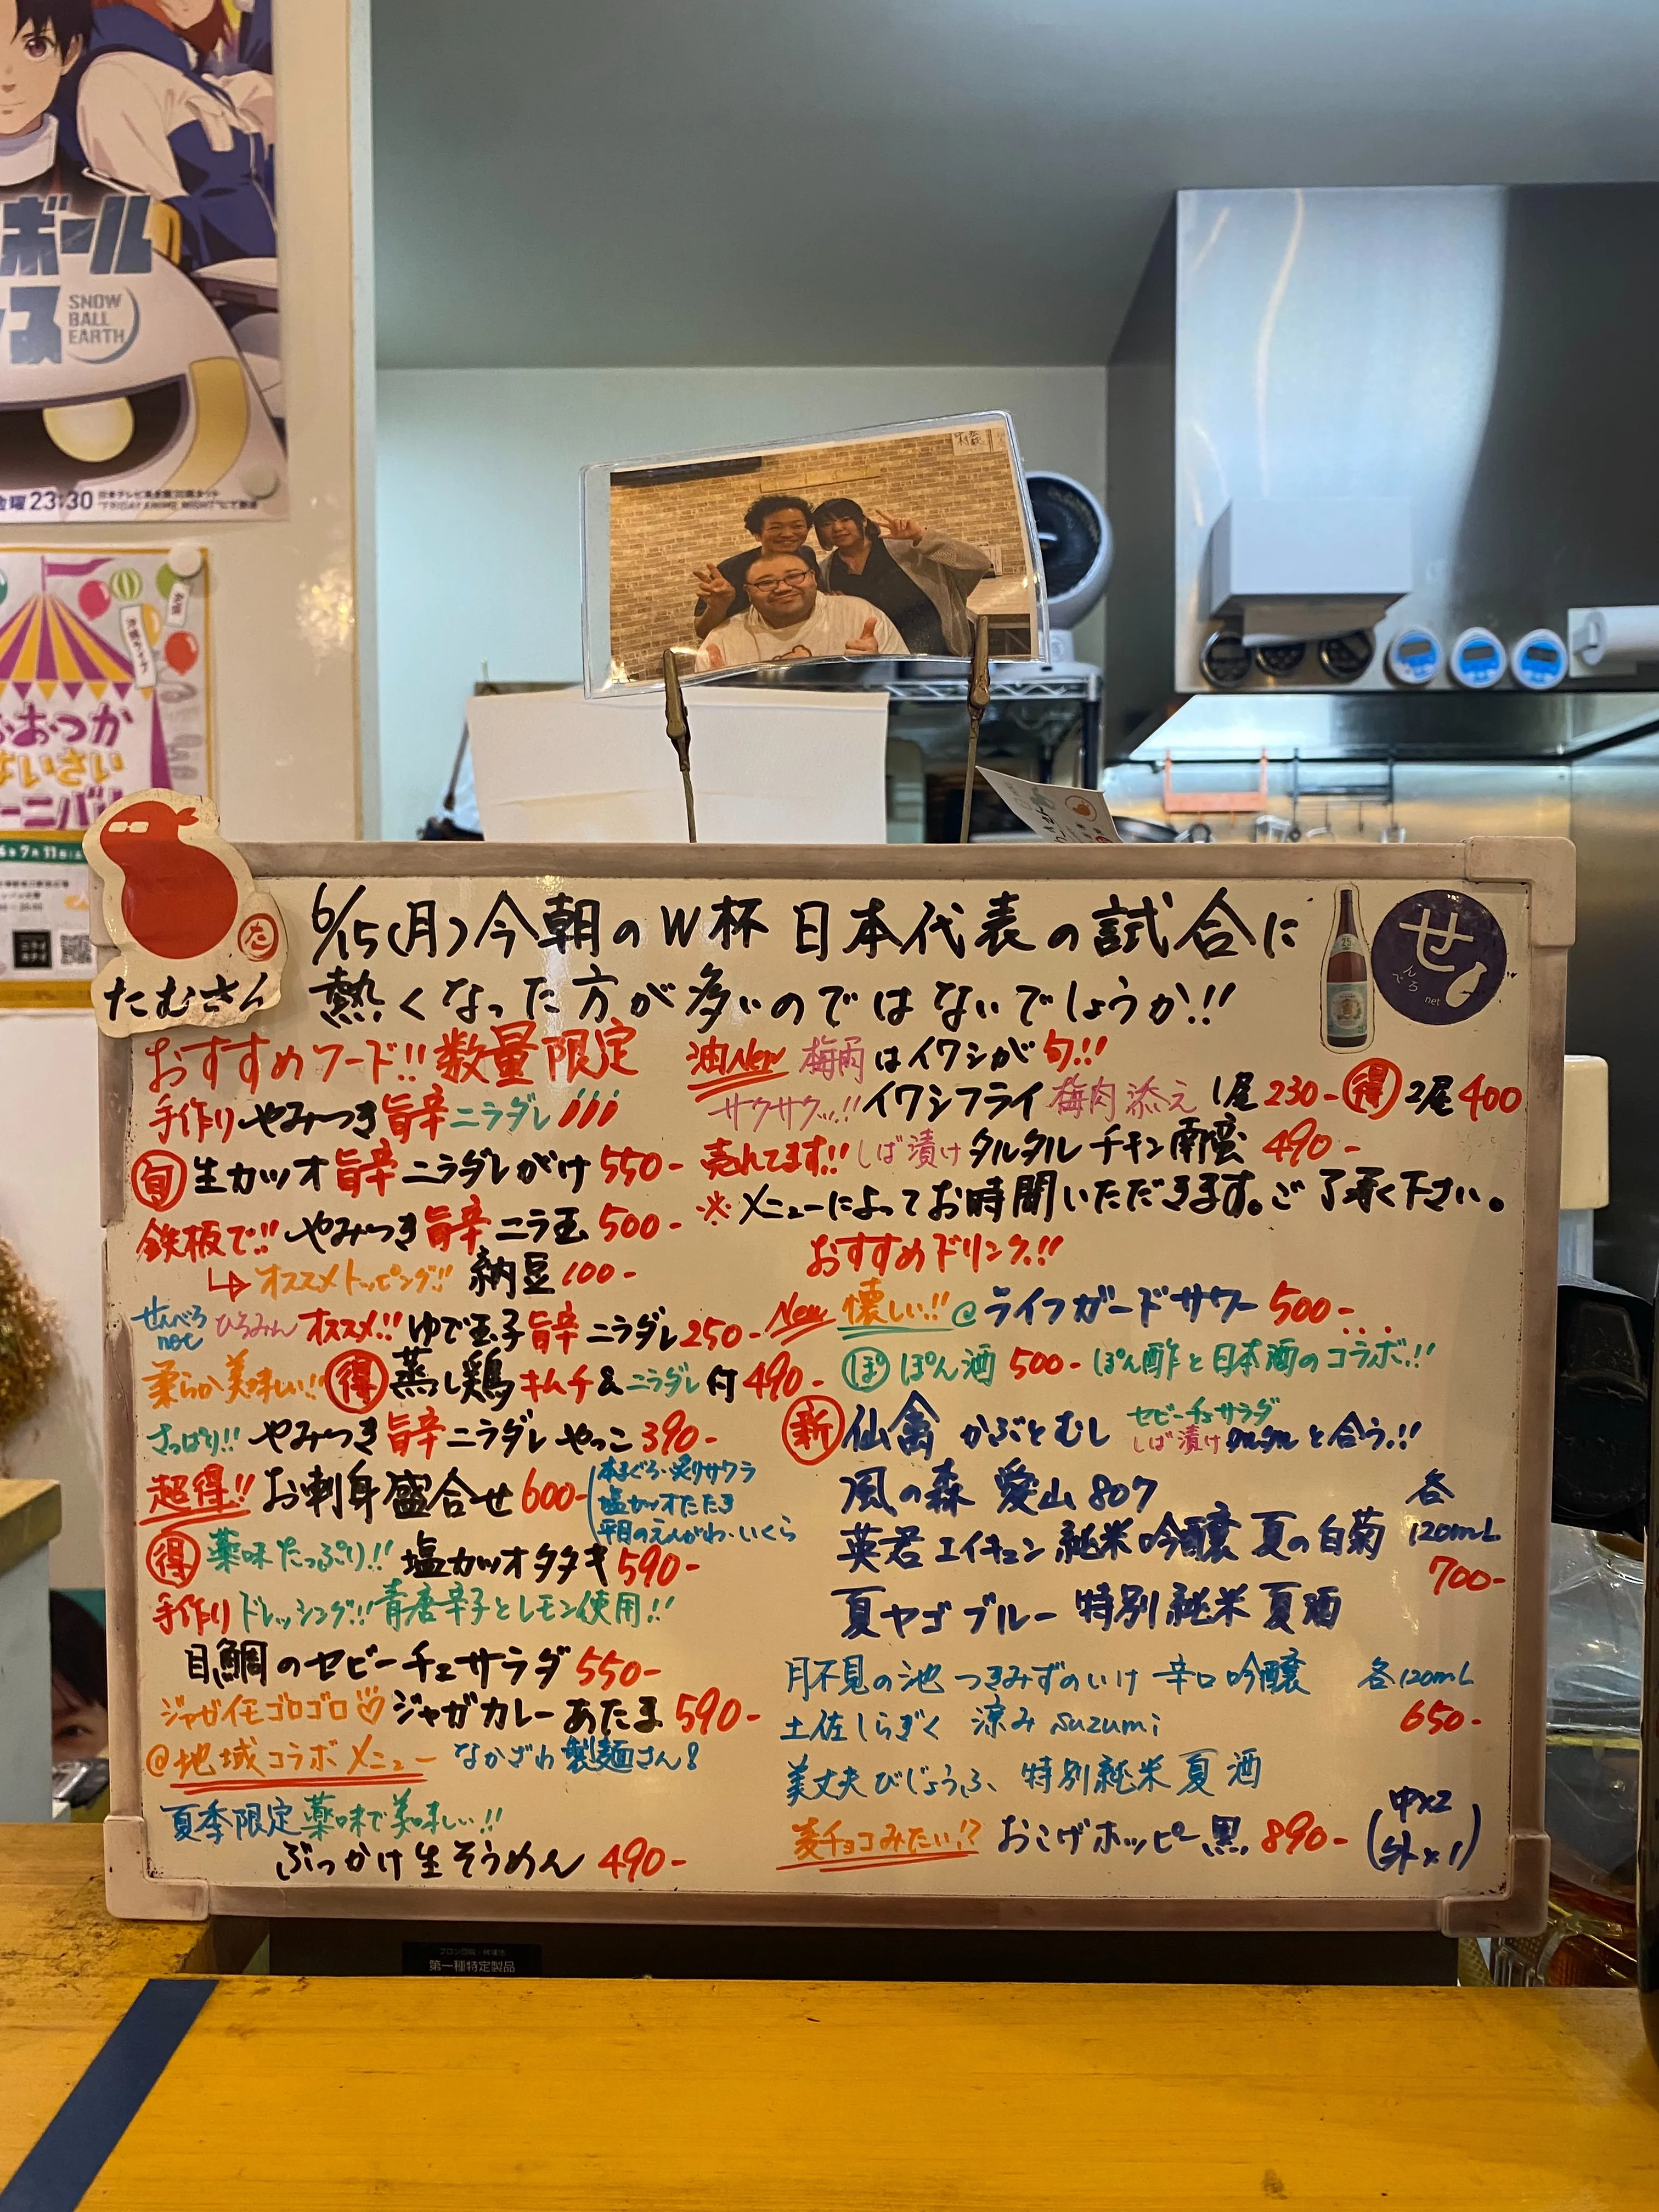 ボール
ス
SNOW
BALL
EARTH
金曜23:30
おおつか
たむさん
せ
んべろ
net
6/15(月)今朝のW杯 日本代表の試合に
熱くなった方が多いのではないでしょうか!!
おすすめフード!!数量限定
手作り やみつき旨辛ニラダレ
旬 生カツオ旨辛ニラダレがけ 550-
鉄板で!! やみつき旨辛ニラ玉 500-
オススメトッピング!! 納豆100-
せんべろ
net
ひろみん オススメ!! ゆで玉子旨辛ニラダレ250-
柔らか美味しい!! 得 蒸し鶏キムチ&ニラダレ付490-
さっぱり!! やみつき旨辛ニラダレやっこ390-
超得!! お刺身盛合せ600-
本まぐろ・炙りサワラ
塩カツオたたき
平目のえんがわ・いくら
得 薬味たっぷり!! 塩カツオタタキ590-
手作りドレッシング!!青唐辛子とレモン使用!!
目鯛のセビーチェサラダ 550-
ジャガイモゴロゴロ♡ジャガカレーあたま590-
@地域コラボメニュー なかざわ製麺さん!
夏季限定薬味で美味しい!!
ぶっかけ生そうめん 490-
油New 梅肉はイワシが旬!!
サクサクッ!!イワシフライ梅肉添え 1尾230- 得 2尾400
売れてます!! しば漬けタルタルチキン南蛮 490-
※メニューによってお時間いただきます。ご了承く下さい。
おすすめドリンク!!
New 懐しい!! @ライフガードサワー 500-
ぽ ぽん酒 500- ぽん酢と日本酒のコラボ!!
新 仙禽 かぶとむし
セビーチェサラダ
しば漬けタルタルと合う!!
風の森 愛山807
英君エイキュン純米吟醸夏の白菊
夏ヤゴブルー特別純米夏酒
各
120mL
700-
月不見の池 つきみずのいけ 辛口吟醸
土佐しらぎく 涼み suzumi
美丈夫びじょうふ 特別純米夏酒
各120mL
650-
麦チョコみたい!? おこげホッピー黒 890-
(中×2
外×1)
第一種特定製品